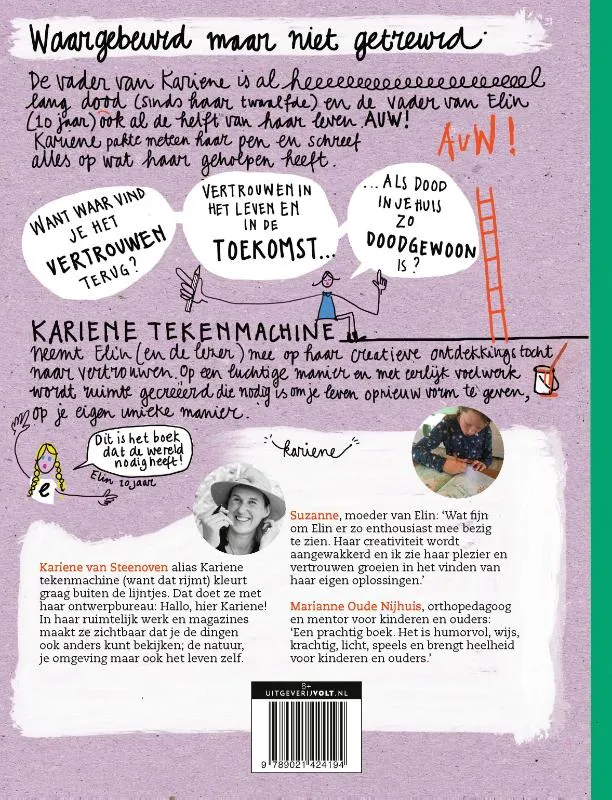 Waargebeurd maar niet getreurd.
De vader van Kariene is al heeeeeeeeeeeeeeeeeel
lang dood (sinds haar twaalfde) en de vader van Elin
(10 jaar) ook al de helft van haar leven AUW!
Kariene pakte meteen haar pen en schreef
alles op wat haar geholpen heeft.
AUW!
WANT WAAR VIND
JE HET
VERTROUWEN
TERUG?
VERTROUWEN IN
HET LEVEN EN
IN DE
TOEKOMST...
...ALS DOOD
IN JE HUIS
ZO
DOODGEWOON
IS?
KARIENE TEKENMACHINE
neemt Elin (en de lezer) mee op haar creatieve ontdekkingstocht
naar vertrouwen. Op een luchtige manier en met eerlijk voelwerk
wordt ruimte gecreëerd die nodig is om je leven opnieuw vorm te geven,
op je eigen unieke manier.
Dit is het boek
dat de wereld
nodig heeft!
Elin 10 jaar
e
kariene
Kariene van Steenoven alias Kariene
tekenmachine (want dat rijmt) kleurt
graag buiten de lijntjes. Dat doet ze met
haar ontwerpbureau: Hallo, hier Kariene!
In haar ruimtelijk werk en magazines
maakt ze zichtbaar dat je de dingen
ook anders kunt bekijken; de natuur,
je omgeving maar ook het leven zelf.
Suzanne, moeder van Elin: ‘Wat fijn
om Elin er zo enthousiast mee bezig
te zien. Haar creativiteit wordt
aangewakkerd en ik zie haar plezier en
vertrouwen groeien in het vinden van
haar eigen oplossingen.’
Marianne Oude Nijhuis, orthopedagoog
en mentor voor kinderen en ouders:
‘Een prachtig boek. Het is humorvol, wijs,
krachtig, licht, speels en brengt heelheid
voor kinderen en ouders.’
8+
UITGEVERIJVOLT.NL
9 789021 424194